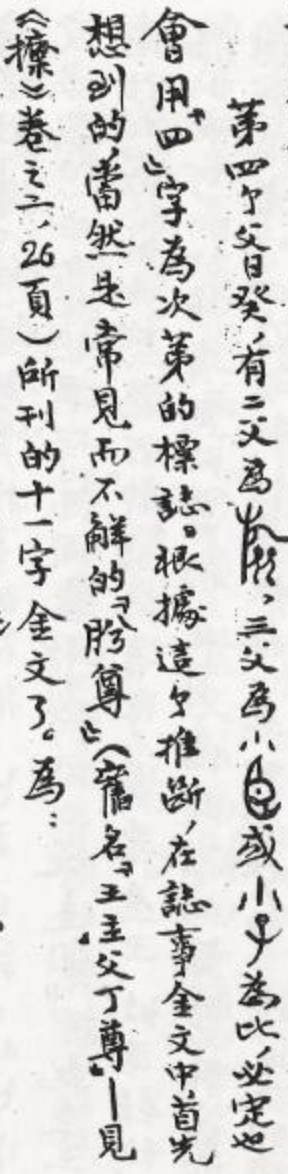 第四个父日癸，有二父為，三父為小或小子為比，必定也
會用“四”字為次第的標誌。根據這个推斷，在誌事金文中首先
想到的，當然是常見而不解的“䏌尊”（舊名“王主父丁尊”—見
《攈》卷之二，26頁）所刊的十一字金文了。為：